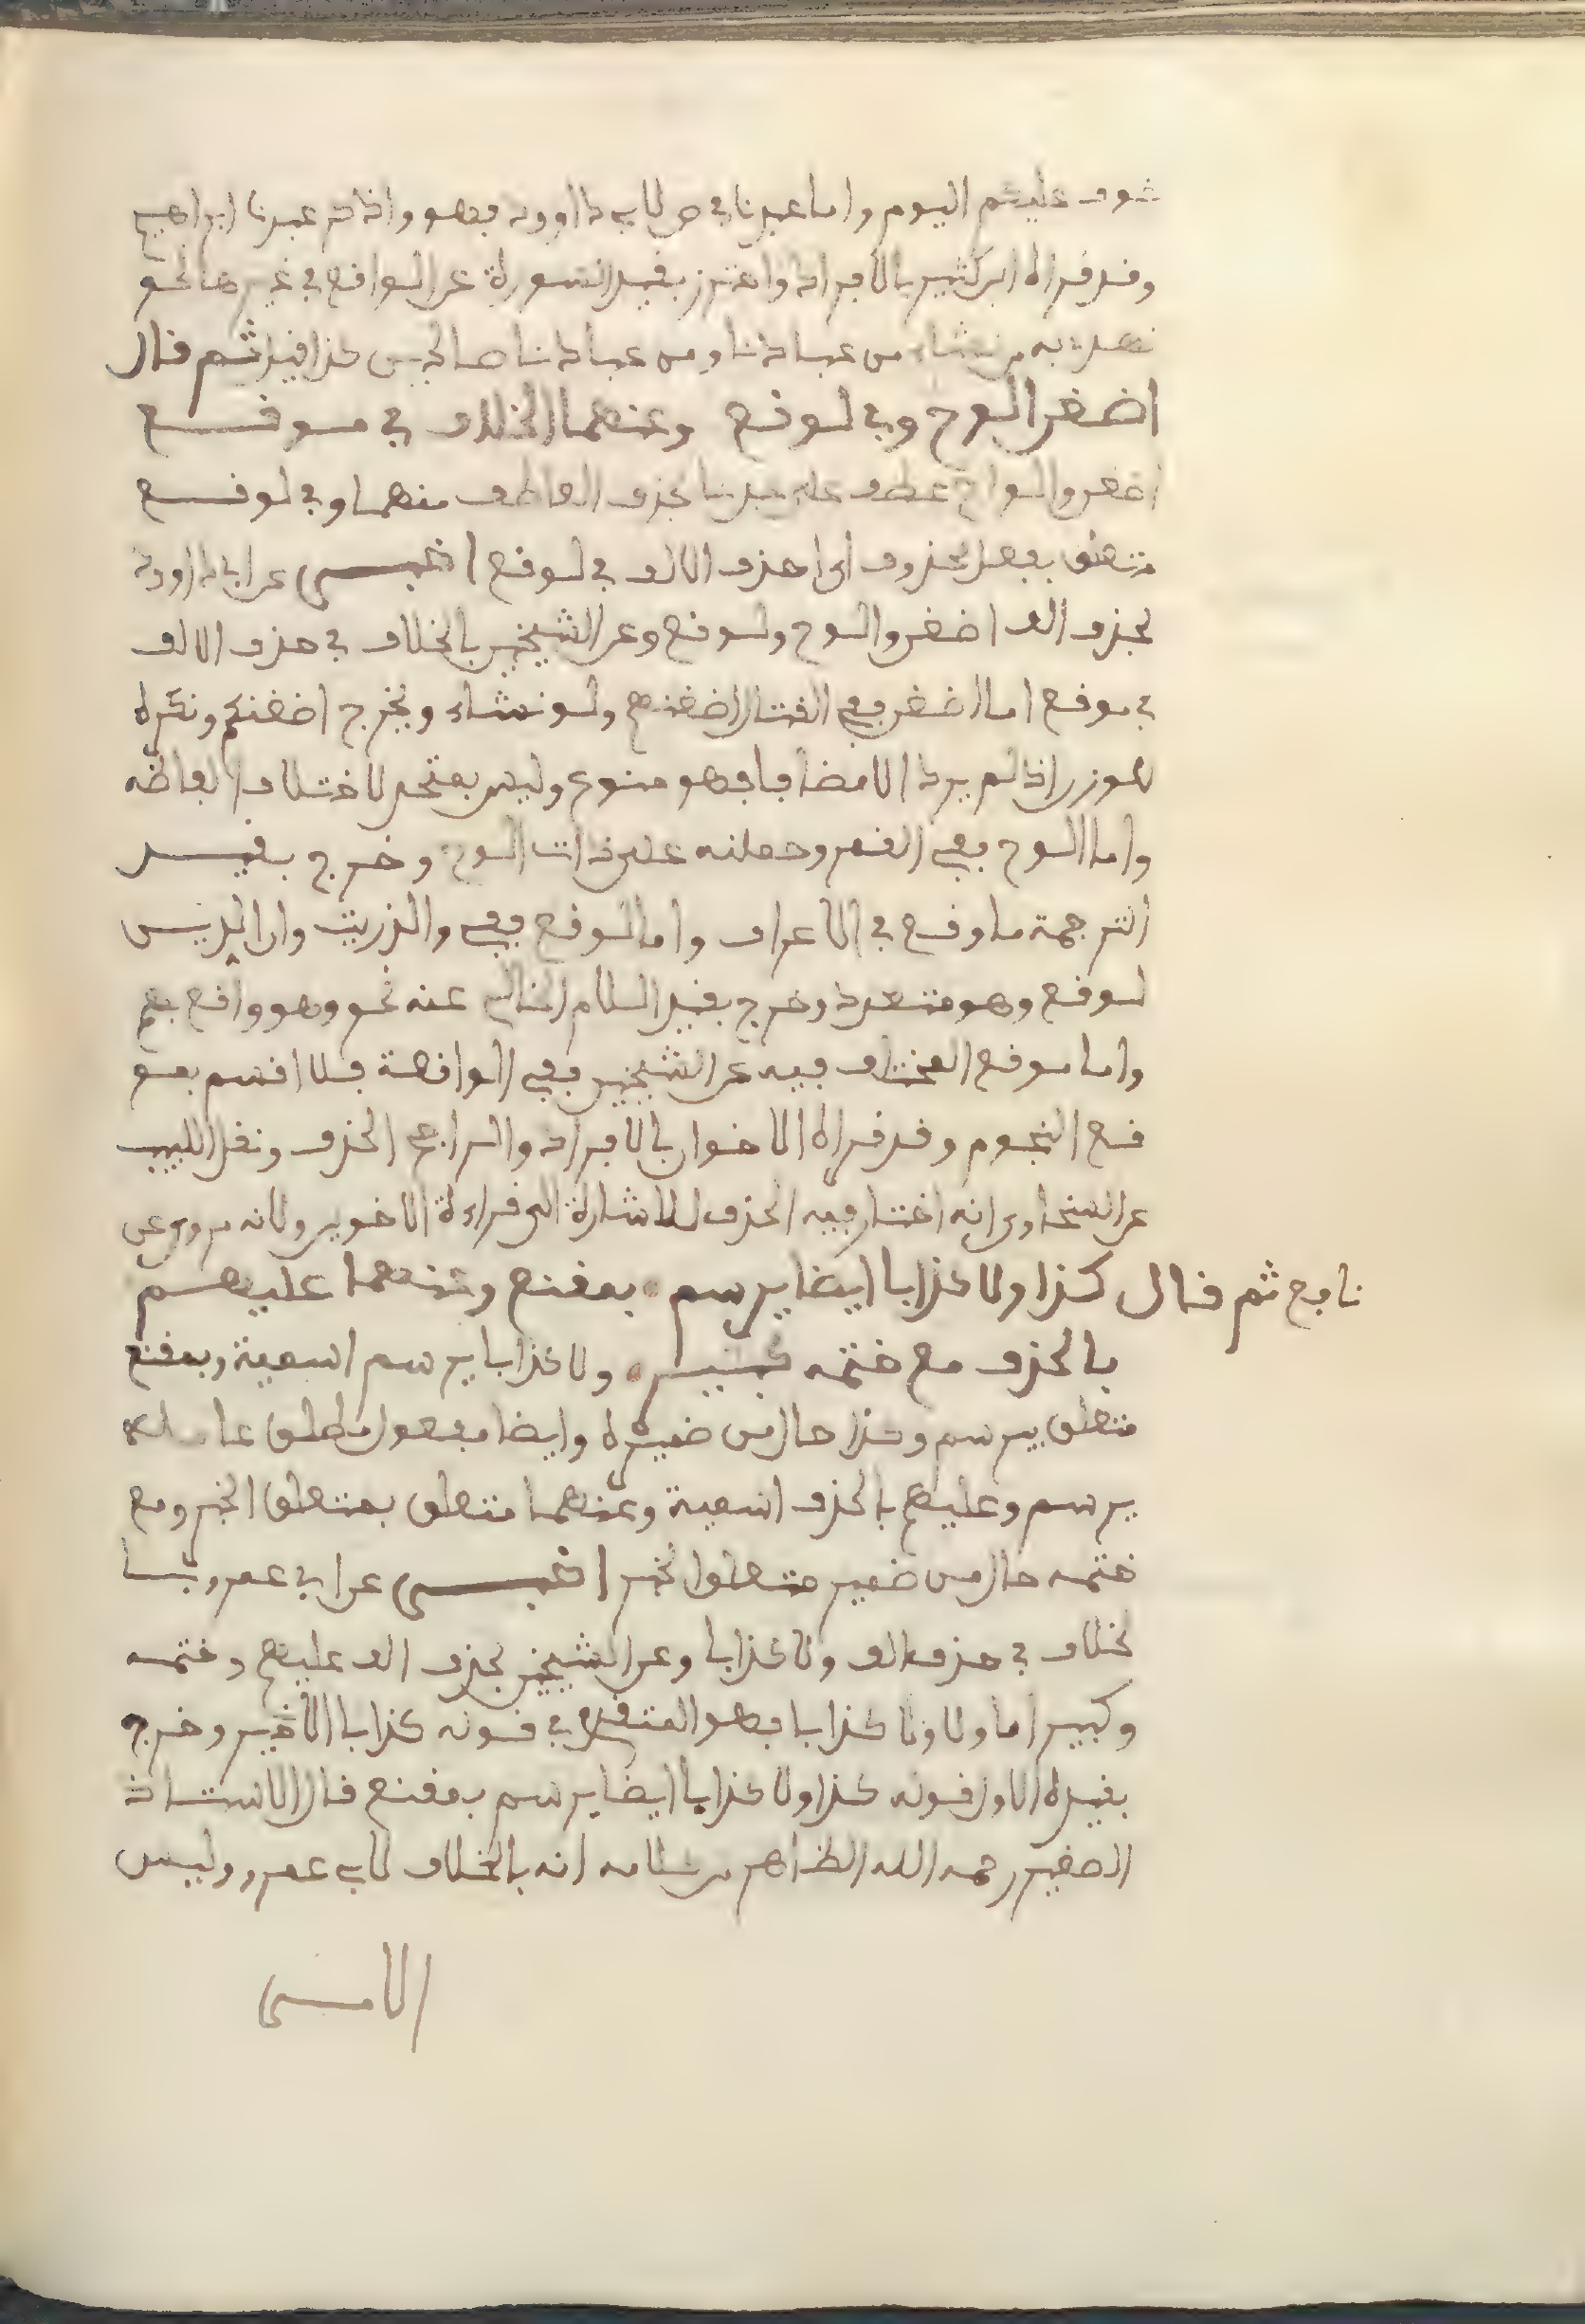 خوف عليكم اليوم واما عبدنا في ص لابي داوود فهو واذكر عبدنا ابراهيم
وقد قراه ابن كثير بالافراد واحترز بقيد السورة عن الواقع في غيرها نحو
نهدي به من نشاء من عبادنا ومن عبادنا صالحين كذا قيل ثم قال
اضغن الوح وفي لوقع وعنهما الخلاف في موقع
اضغن والواح عطف على عبدنا بحذف العاطف منهما وفي لوقع
متعلق بفعل محذوف اي احذف الالف في لوقع اخبر عن ابي داوود
بحذف الف اضغن والوح ولوقع وعن الشيخين بالخلاف في حذف الالف
في موقع اما اضغن ففي القتال اضغنهم ولو نشاء ويخرج اضغنكم ونكره
للوزن اذ لم يرد الا مضافا فهو منوع وليس بمتحد لاختلاف الفاظه
واما الوح ففي القمر وحملنه على ذات الوح وخرج بقيد
الترجمة ما وقع في الاعراف واما لوقع ففي والذريت وان الدين
لوقع وهو متعدد وخرج بقيد اللام الخالي عنه نحو وهو واقع بهم
واما موقع المختلف فيه عن الشيخين ففي الواقعة فلا اقسم بمو
قع النجوم وقد قراه الاخوان بالافراد والراجح الحذف ونقل اللبيب
عن السخاوي انه اختار فيه الحذف للاشارة الى قراءة الاخوين ولانه مروي عن
نافع ثم قال كذا ولا كذابا ايضا يرسم بمقنع وعنهما عليهم
بالحذف مع ختمه كبير ولا كذابا يرسم اسمية وبمقنع
متعلق بيرسم وكذا حال من ضميره وايضا مفعول مطلق عامله
يرسم وعليهم بالحذف اسمية وعنهما متعلق بمتعلق الخبر ومع
ختمه حال من ضمير متعلق الخبر اخبر عن ابي عمرو
بخلاف في حذف الف ولا كذابا وعن الشيخين بحذف الف عليهم وختمه
وكبير اما ولا ولا كذابا فهو المتقدم في قوله كذابا الاخير وخرج
بقيده الاول قوله كذا ولا كذابا ايضا يرسم بمقنع قال الاستاذ
الصغير رحمه الله الظاهر من كلامه انه بالخلاف لابي عمرو وليس